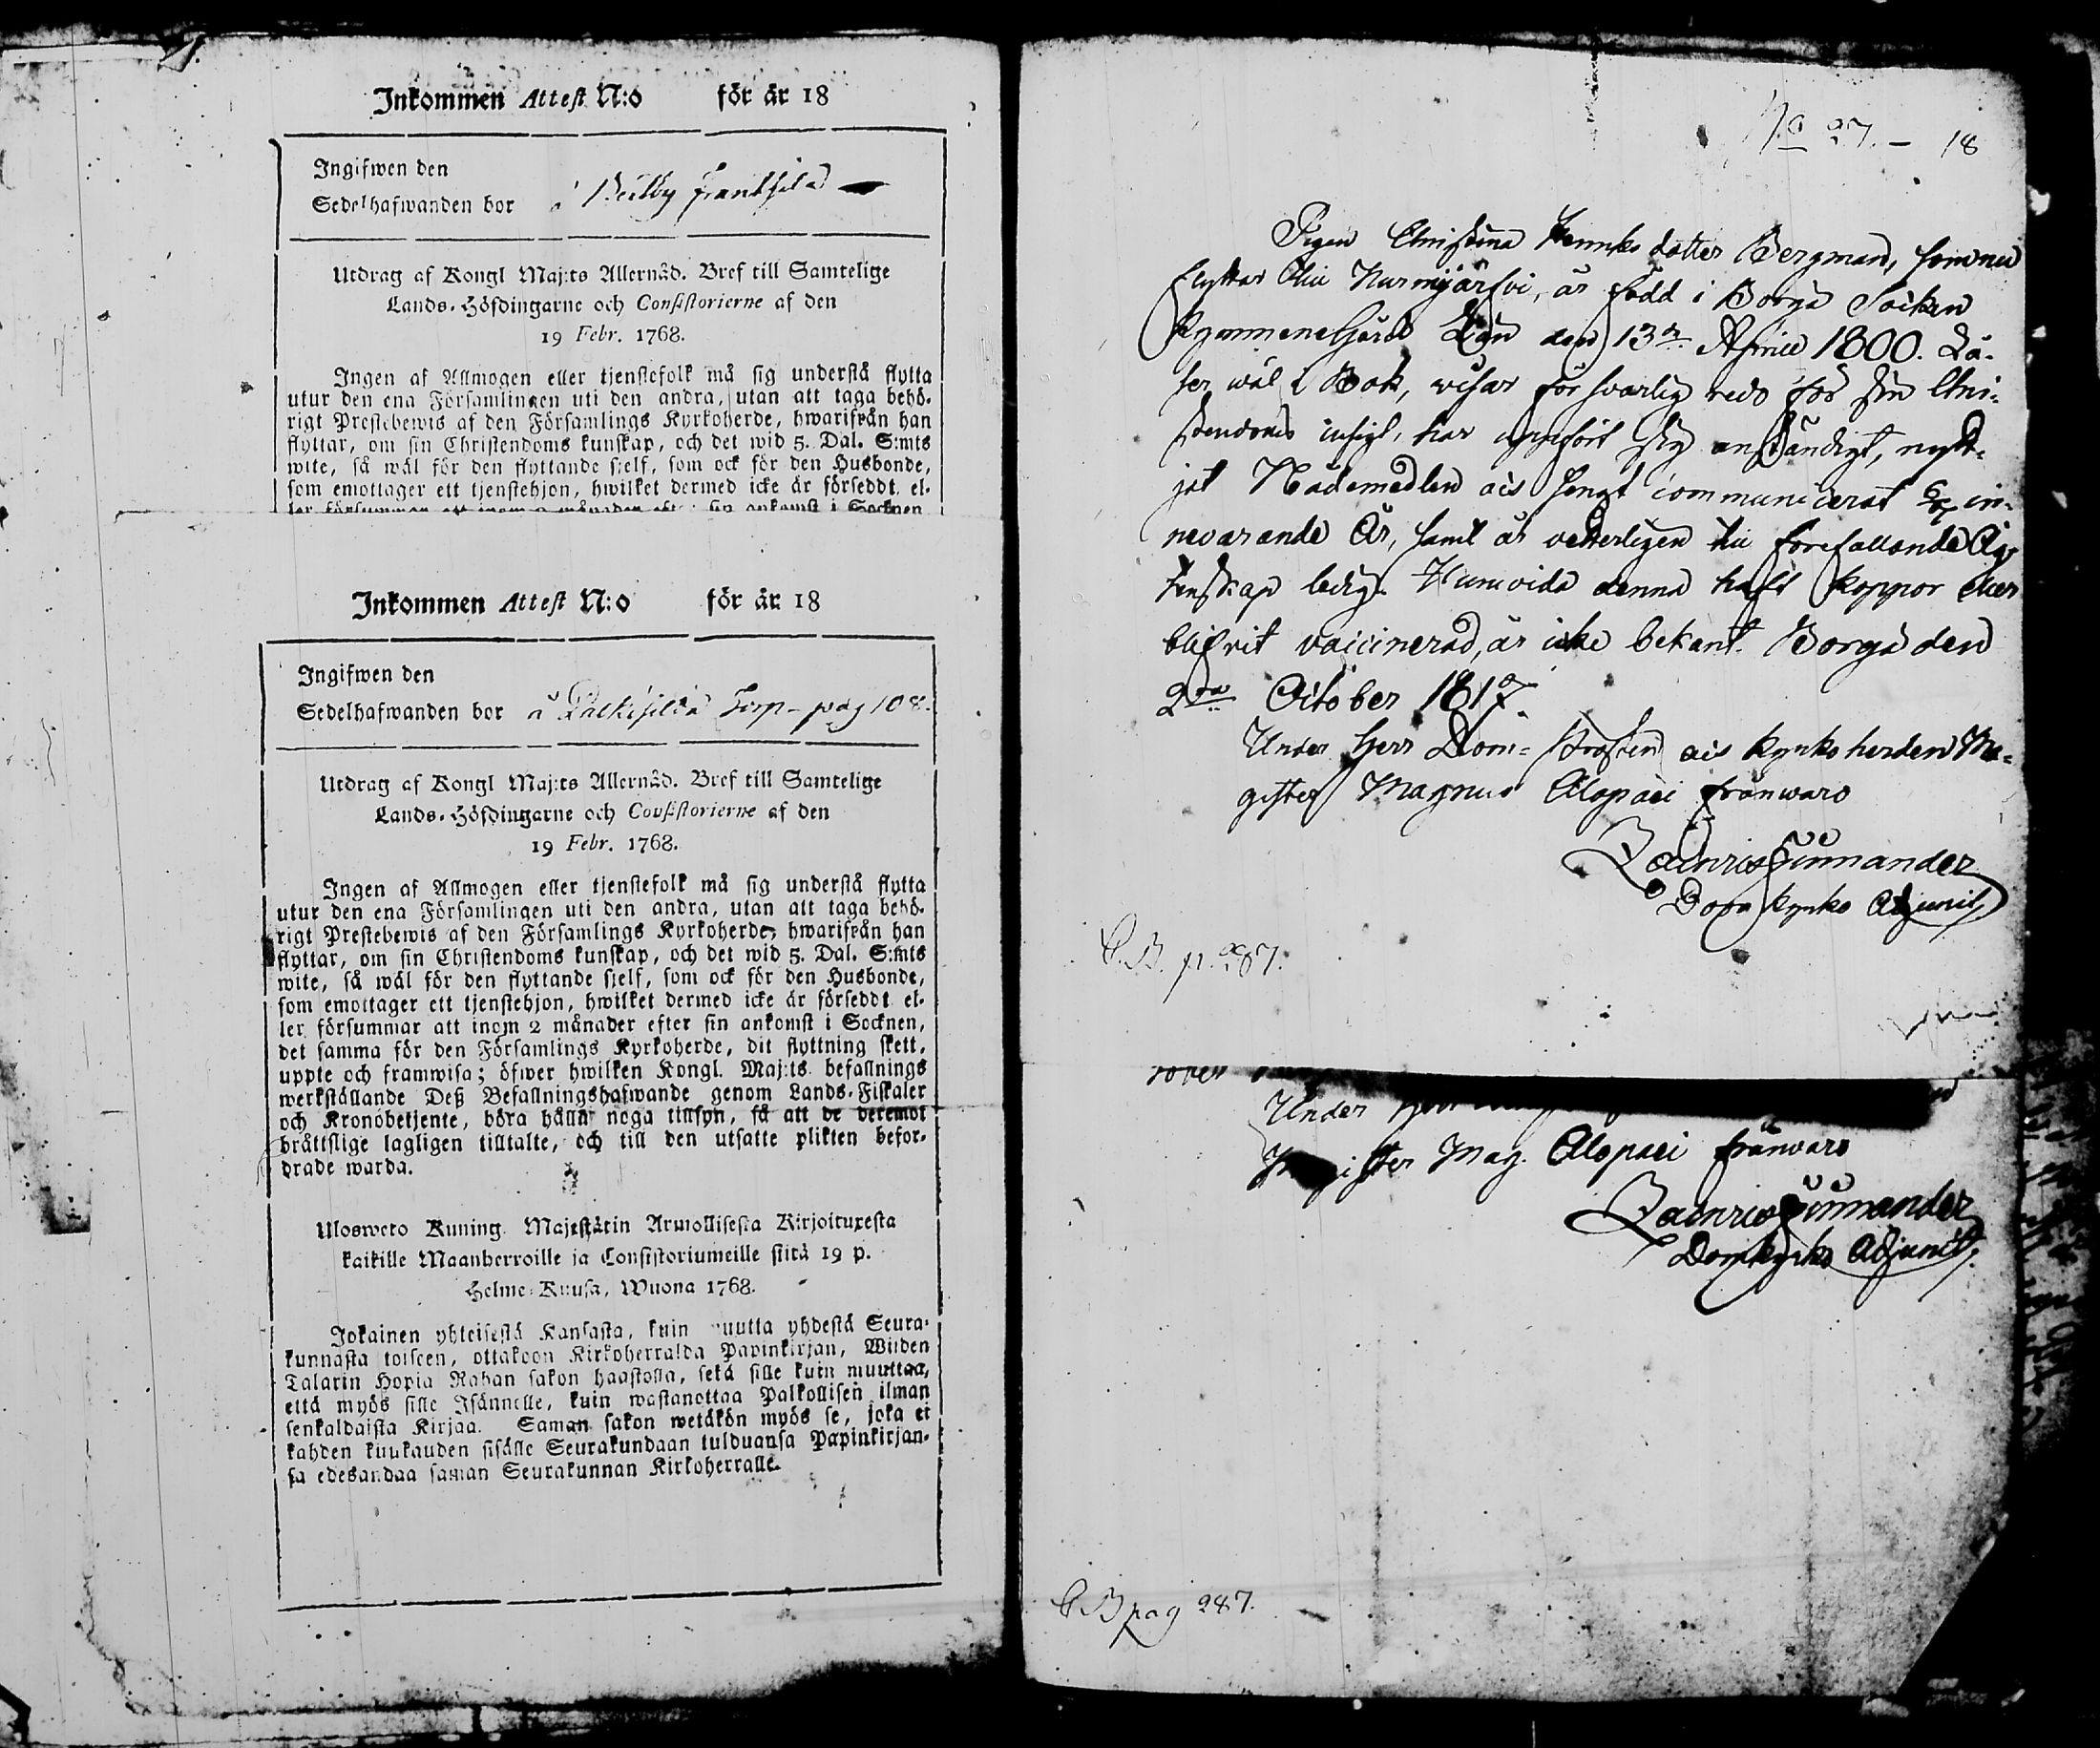 Inkommen Attest N:o för år 18
Ingifwen den
Sedelhafwanden bor å
Utdrag af Kongl Maj:ts Allernåd. Bref till Samtelige
Lands-Höfdingarne och Consistorierne af den
19 Febr. 1768.
Ingen af Allmogen eller tjenstefolk må sig understå flytta
utur den ena Församlingen uti den andra, utan att taga behö-
rigt Prestebewis af den Församlings Kyrkoherde, hwarifrån han
flyttar, om sin Christendoms kunskap, och det wid 5. Dal. S:mts
wite, så wäl för den flyttande sjelf, som ock för den Husbonde,
som emottager ett tjenstehjon, hwilket dermed icke är förseddt, el-
ler försummar att inom 2 månader efter sin ankomst i Socknen
Inkommen Attest N:o för år 18
Ingifwen den
Sedelhafwanden bor å Torp - pag 108.
Utdrag af Kongl Maj:ts Allernåd. Bref till Samtelige
Lands-Höfdingarne och Consistorierne af den
19 Febr. 1768.
Ingen af Allmogen eller tjenstefolk må sig understå flytta
utur den ena Församlingen uti den andra, utan att taga behö-
rigt Prestebewis af den Församlings Kyrkoherde, hwarifrån han
flyttar, om sin Christendoms kunskap, och det wid 5. Dal. S:mts
wite, så wäl för den flyttande sjelf, som ock för den Husbonde,
som emottager ett tjenstehjon, hwilket dermed icke är förseddt el-
ler försummar att inom 2 månader efter sin ankomst i Socknen,
det samma för den Församlings Kyrkoherde, dit flyttning skett,
uppte och framwisa; öfwer hwilken Kongl. Maj:ts befallnings
werkställande Deß Befallningshafwande genom Lands-Fiskaler
och Kronobetjente, böra hålla noga tillsyn, få att de deremot
bråttslige lagligen tilltalte, och till den utsatte plikten befor-
drade warda.
Ulosweto Kuning. Majestätin Armollisesta Kirjoituxesta
kaikille Maanherroille ja Consistoriumeille siitä 19 p.
Helme-Kuusa, Wuona 1768.
Jokainen yhteisestä Kansasta, kuin muutta yhdestä Seura-
kunnasta toiseen, ottakoon Kirkoherralda Papinkirjan, Wiiden
Talarin Hopia Rahan sakon haastolla, sekä sille kuin muuttaa,
että myös sille Isännelle, kuin wastanottaa Palkollisen ilman
senkaldaista Kirjaa. Saman sakon wetäkön myös se, joka ei
kahden kuukauden sisälle Seurakundaan tulduansa Papinkirjan-
sa edesandaa saman Seurakunnan Kirkoherralle.
No 27. - 18
Pigan Christina Henriks dotter Bergman, som nu
flyttar till Nurmijärfvi, är född i Borgå Socken
Kymmenegårds Län den 13de April 1800. Lä-
ser wäl i Bok, visar försvarlig redo för sin Chri-
stendoms insigt, har uppfört sig anständigt, nytt-
jat Nådemedlen och sengt communicerat in-
nevarande År, samt är vetterligen till förefallande Äg-
tenskap ledig. Huruvida denna haft koppor eller
blifvit vaccinerad, är icke bekant. Borgå den
2dra October 1817.
Under Herr Dom-Prosten och Kyrkoherden Ma-
gister Magnus Alopaei frånwaro
Domkyrko Adjunct
C.B. p. 287.
Under
Magister Mag. Alopaei frånwaro
Domkyrko Adjunct.
C.B pag 287.